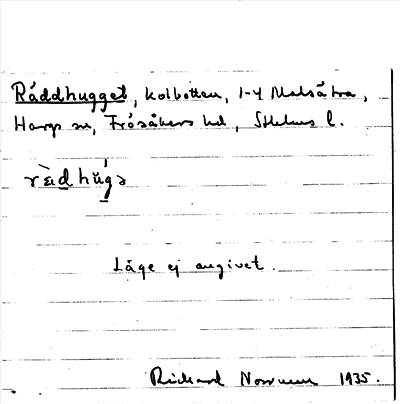 Räddhugget, kolbotten, 1-4 Malsätra,
Hargs sn, Frösåkers hd, Sthlms l.
rèıdhu̇́gə
Läge ej angivet.
Richard 1935.